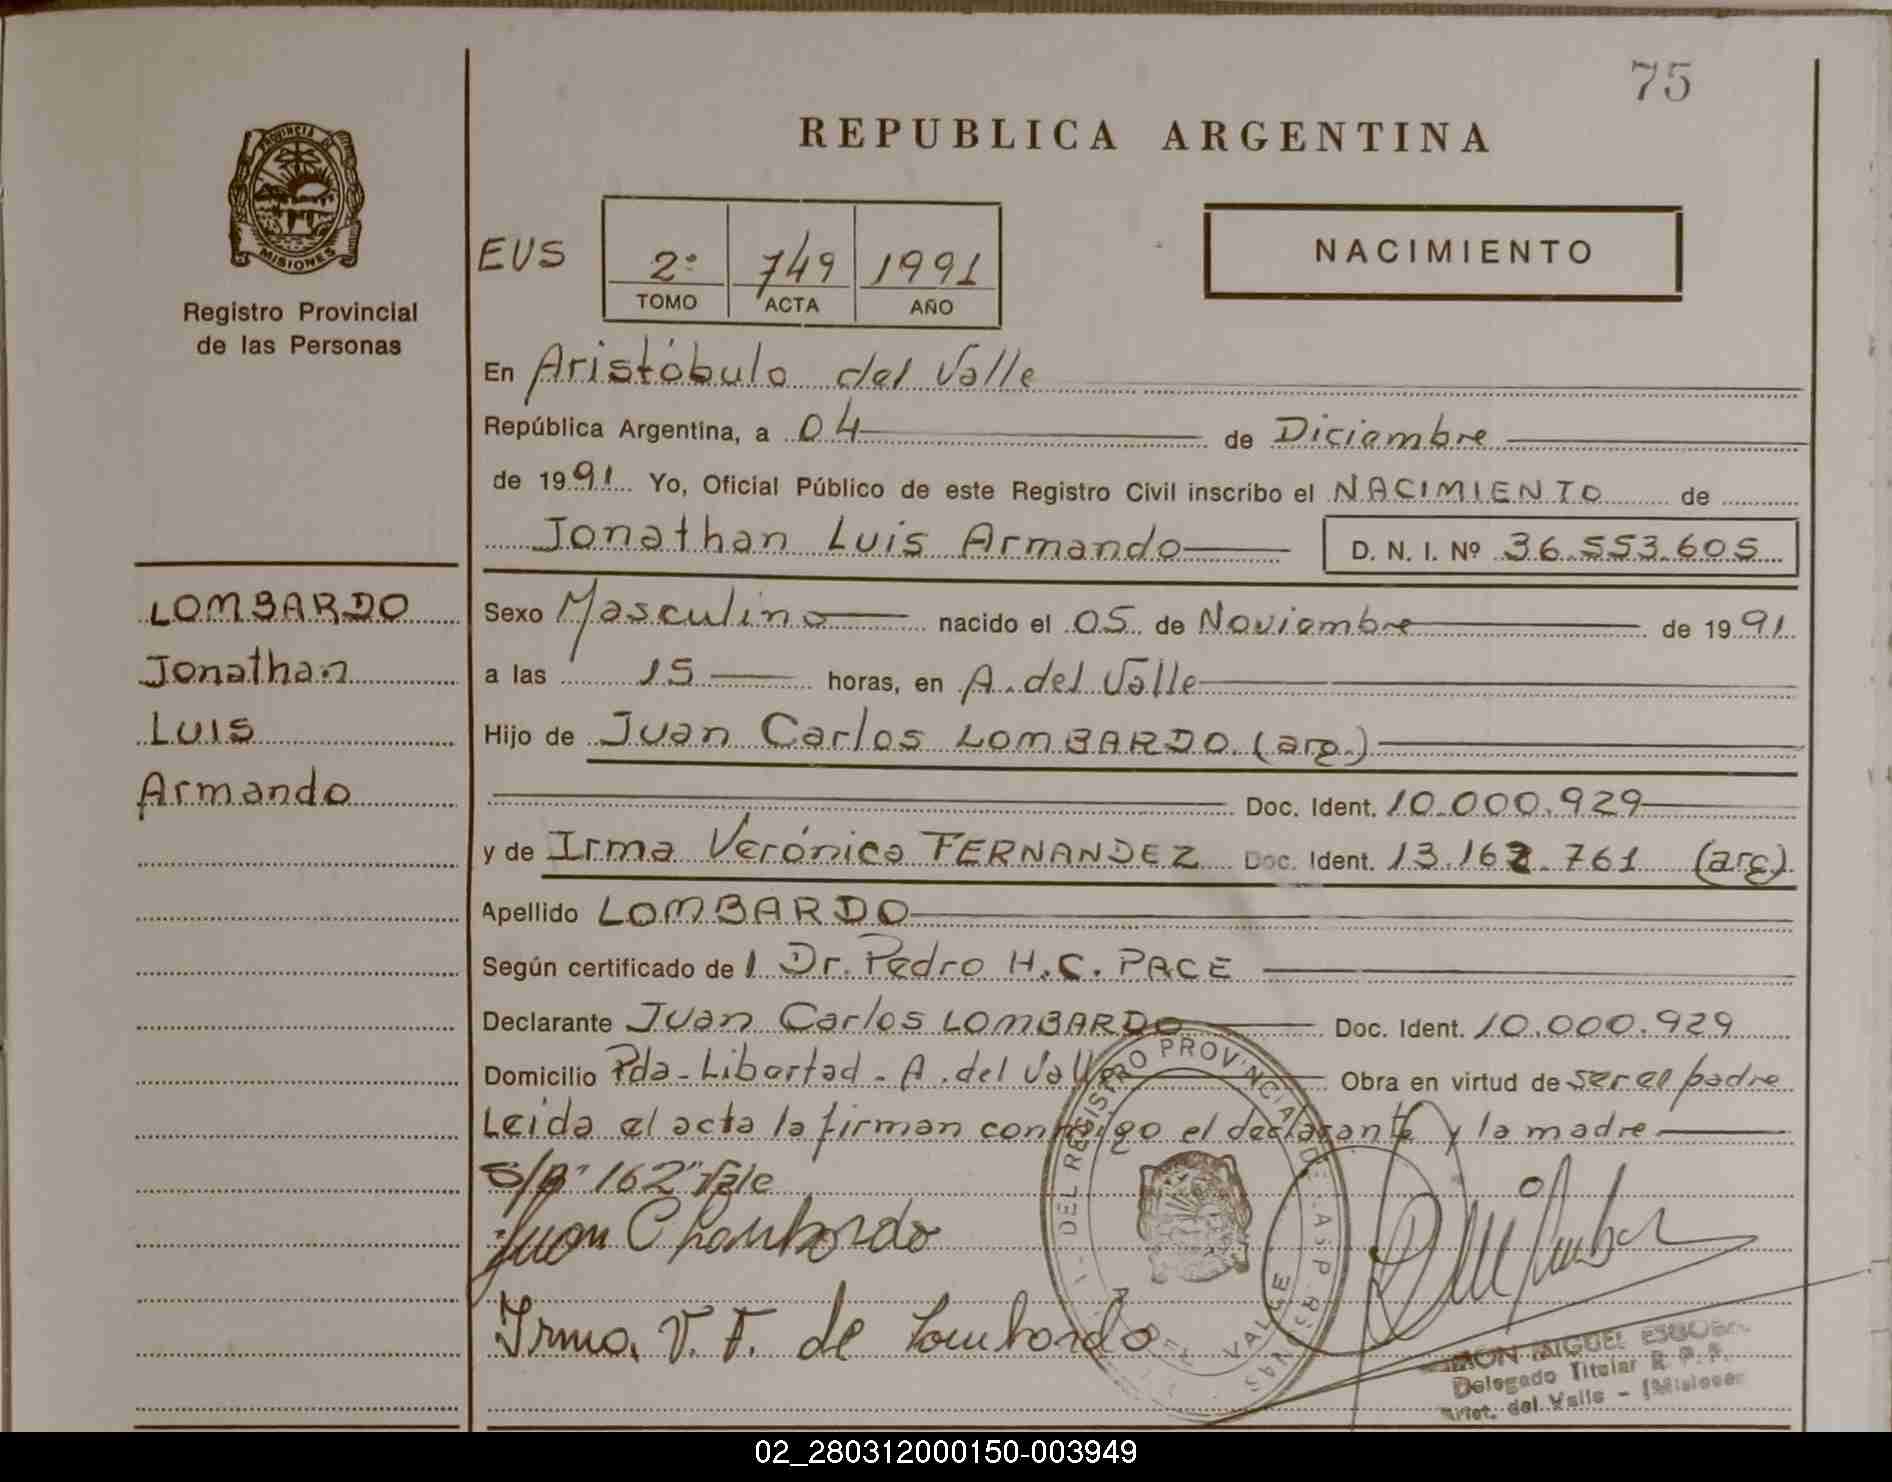 75
PROVINCIA DE
MISIONES
Registro Provincial
de las Personas
REPUBLICA ARGENTINA
EUS
2º 749 1991
TOMO ACTA AÑO
NACIMIENTO
En Aristóbulo del Valle
República Argentina, a 04 de Diciembre
de 1991 Yo, Oficial Público de este Registro Civil inscribo el NACIMIENTO de
Jonathan Luis Armando D. N. I. Nº 36.553.605
LOMBARDO
Jonathan
Luis
Armando
Sexo Masculino nacido el 05 de Noviembre de 1991
a las 15 horas, en A. del Valle
Hijo de Juan Carlos LOMBARDO (arg.)
Doc. Ident. 10.000.929
y de Irma Verónica FERNANDEZ Doc. Ident. 13.162.761 (arg)
Apellido LOMBARDO
Según certificado de 1 Dr. Pedro H.C. PACE
Declarante Juan Carlos LOMBARDO Doc. Ident. 10.000.929
Domicilio Pda-Libertad-A.del Valle Obra en virtud de ser el padre
Leida el acta la firman conmigo el declarante y la madre
S/B "162" Vale
Juan C Lombardo
Irma. V. F. de Lombardo
DEL REGISTRO PROVINCIAL DE LAS PERSONAS
DEL VALLE
MIGUEL
Delegado Titular R. P. P.
Arist. del Valle - (Misiones
02_280312000150-003949